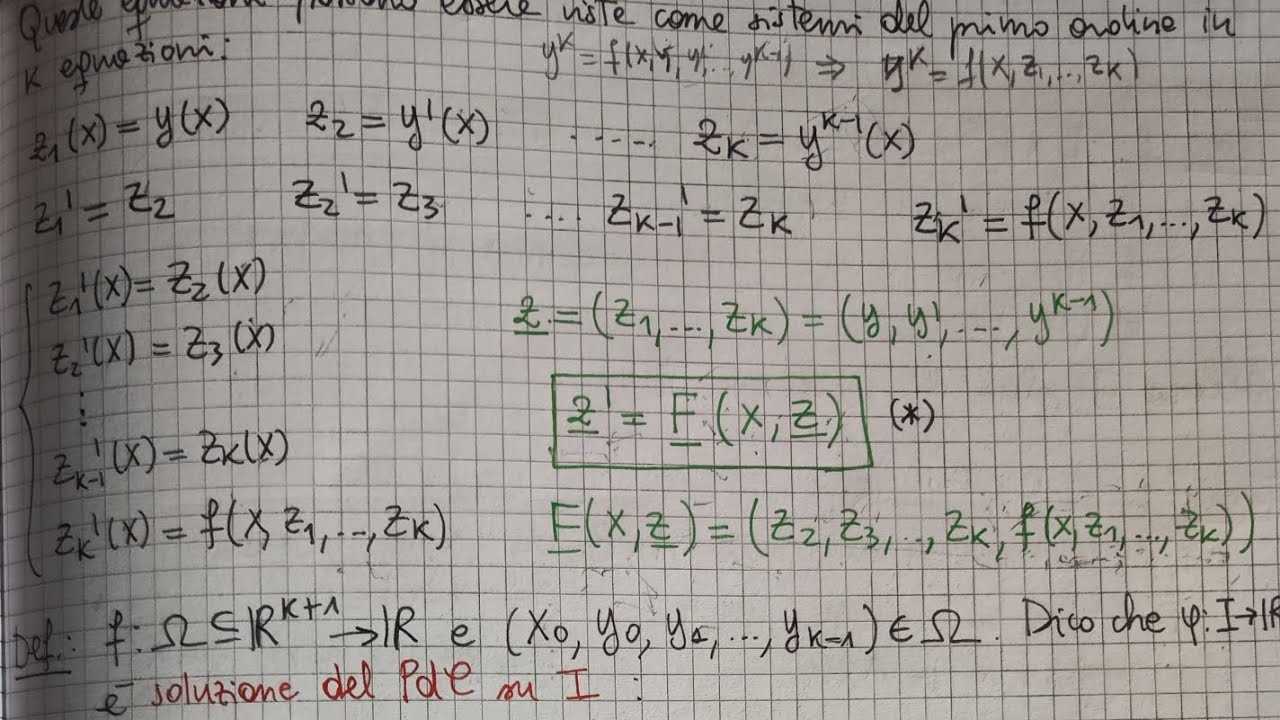 Queste equazioni possono essere viste come sistemi del primo ordine in
K equazioni: y^K = f(x, y, y', ..., y^{K-1}) ⇒ y^K = f(x, z_1, ..., z_K)
z_1(x) = y(x) z_2 = y'(x) ..... z_K = y^{K-1}(x)
z_1' = z_2 z_2' = z_3 .... z_{K-1}' = z_K z_K' = f(x, z_1, ..., z_K)
z_1'(x) = z_2(x)
z_2'(x) = z_3(x)
⋮
z_{K-1}'(x) = z_K(x)
z_K'(x) = f(x, z_1, ..., z_K)
z = (z_1, ..., z_K) = (y, y', ..., y^{K-1})
z' = F(x, z) (*)
F(x, z) = (z_2, z_3, ..., z_K, f(x, z_1, ..., z_K))
Def.: f: Ω ⊆ ℝ^{K+1} → ℝ e (x_0, y_0, y_1, ..., y_{K-1}) ∈ Ω. Dico che φ: I → ℝ
è soluzione del PdC su I :